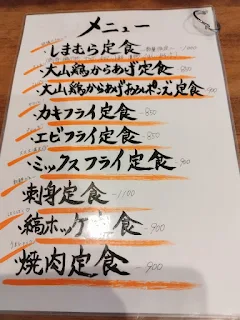 メニュー
しまむら定食
・大山鶏からあげ定食 -850
・大山鶏からあげおろしポン酢定食 900
・カキフライ定食 -850
・エビフライ定食 -800
・ミックスフライ定食 900
・刺身定食 -1100
・縞ホッケ定食 -900
・焼肉定食 - 900